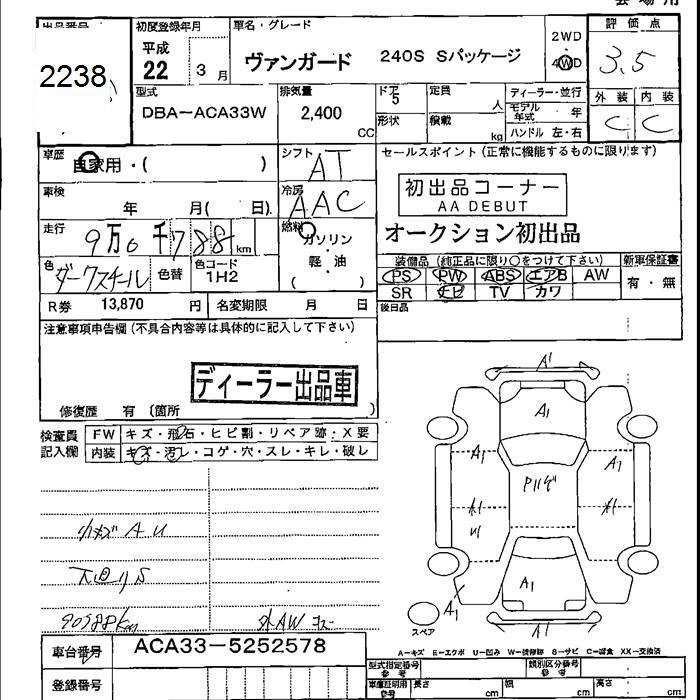 出品番号
2238
初度登録年月
平成
22 3月
車名・グレード
ヴァンガード 240S Sパッケージ
2WD
4WD
評価点
3.5
型式
DBA-ACA33W
排気量
2,400 CC
ドア
5
形状
定員 人
積載 kg
ディーラー・並行
モデル年式 年
ハンドル 左・右
外装 内装
C C
車歴
自家用・( )
シフト
AT
車検
年 月( 日)
冷房
AAC
走行
9万0千788km
燃料
ガソリン
軽・油
( )
色
ダークスチール
色替
色コード
1H2
R券 13,870円
名変期限 月 日
セールスポイント(正常に機能するものに限ります)
初出品コーナー
AA DEBUT
オークション初出品
装備品(純正品に限り○をつけて下さい)
新車保証書
PS PW ABS エアB AW
SR ナビ TV カワ
有・無
後日品
注意事項申告欄(不具合内容等は具体的に記入して下さい)
ディーラー出品車
修復歴 有(箇所 )
検査員
記入欄
FW キズ・飛石・ヒビ割・リペア跡・X要
内装 キズ・汚レ・コゲ・穴・スレ・キレ・破レ
小キズ A U
90588km
外AW
A1
A1
A1
A1
A1
A1
A1
スペア
A-キズ E-エクボ U-凹み W-補修跡 S-サビ C-腐食 XX-交換済
車台番号
ACA33-5252578
登録番号
型式指定番号
参考
類別区分番号
参考
車庫証明用
参考
長さ cm
幅 cm
高さ cm